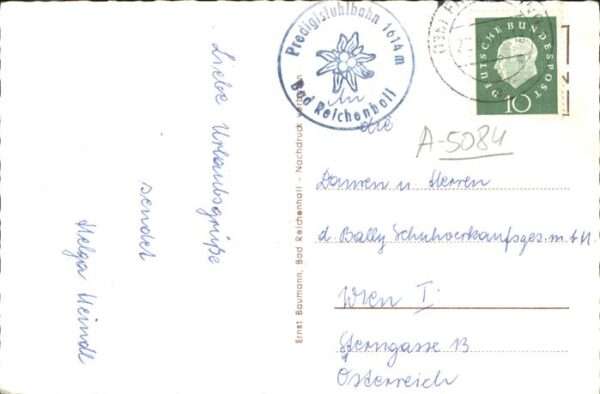 Liebe Urlaubsgrüße
sendet
Helga Heindl
Ernst Baumann, Bad Reichenhall - Nachdruck
Predigtstuhlbahn 1614 m
Bad Reichenhall
DEUTSCHE BUNDESPOST
10
A-5084
An
die
Damen u. Herren
d. Bally Schuhverkaufsges. m. b. H.
Wien I.
Sterngasse 13
Österreich